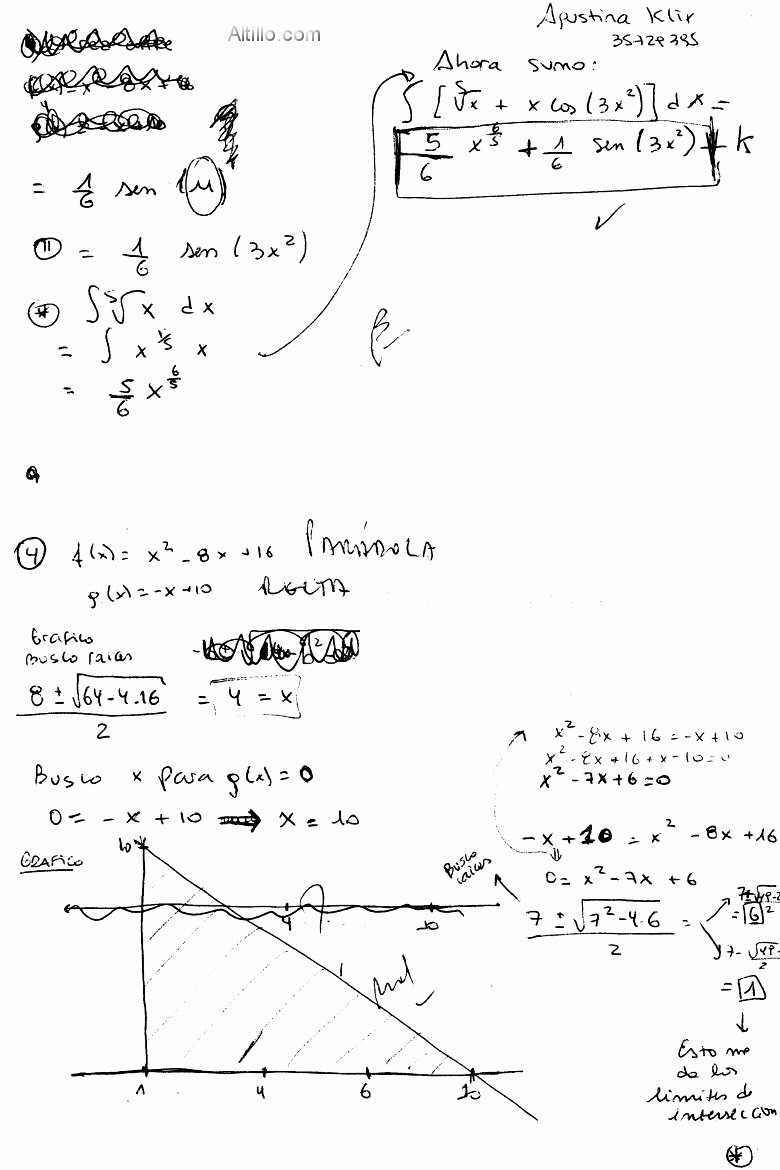 Altillo.com
Agustina Klix
35729395
= 1/6 sen (u)
(11) = 1/6 sen (3x²)
(*) ∫ ⁵√x dx
= ∫ x^(1/5) x
= 5/6 x^(6/5)
Ahora sumo:
∫ [⁵√x + x cos (3x²)] dx =
5/6 x^(6/5) + 1/6 sen (3x²) + k
✓
(4) f(x) = x² - 8x + 16 PARÁBOLA
g(x) = -x + 10 RECTA
Gráfico
Busco raices
(8 ± √(64-4.16))/2 = 4 = x
Busco x para g(x) = 0
0 = -x + 10 ⟹ x = 10
GRAFICO
10
4 10
mal
1 4 6 10
x² - 8x + 16 = -x + 10
x² - 8x + 16 + x - 10 = 0
x² - 7x + 6 = 0
-x + 10 = x² - 8x + 16
0 = x² - 7x + 6
Busco raices
(7 ± √(7² - 4.6))/2 =
= 6
= 1
Esto me
da los
limites de
interseccion
(*)